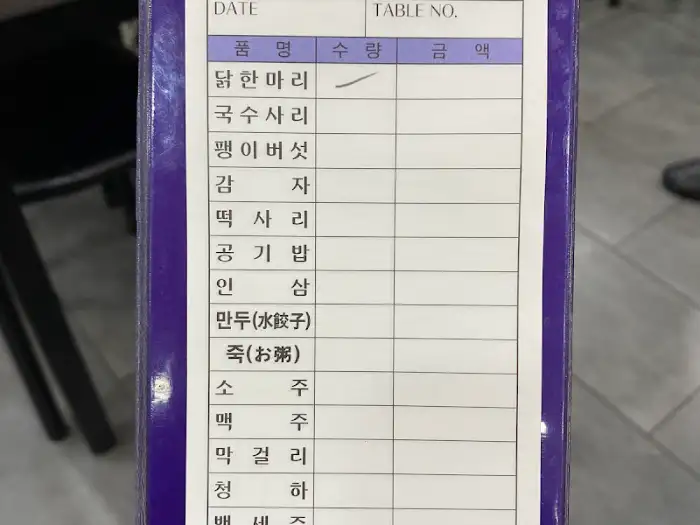 DATE TABLE NO.
품 명 수 량 금 액
닭한마리
국수사리
팽이버섯
감 자
떡 사 리
공 기 밥
인 삼
만두(水餃子)
죽(お粥)
소 주
맥 주
막 걸 리
청 하
백 세 주